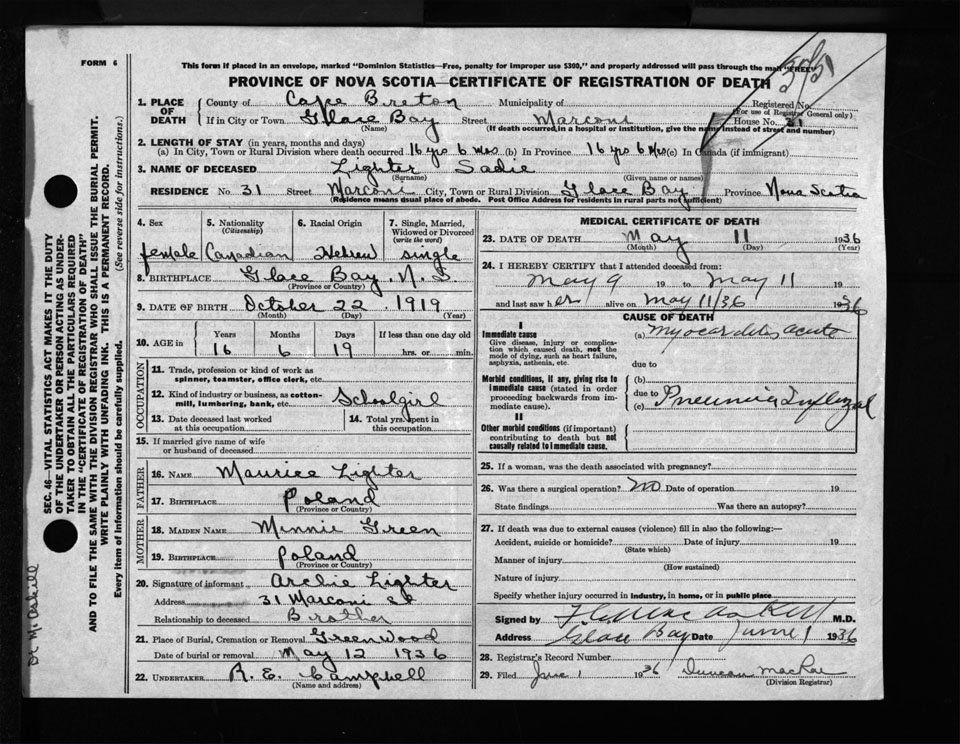 FORM 6
This form if placed in an envelope, marked "Dominion Statistics—Free, penalty for improper use $300," and properly addressed will pass through the mail "FREE"
PROVINCE OF NOVA SCOTIA—CERTIFICATE OF REGISTRATION OF DEATH
1. PLACE OF DEATH
County of Cape Breton Municipality of
Registered No.
(For use of Registrar General only)
If in City or Town Glace Bay Street Marconi House No. 31
(Name) (If death occurred in a hospital or institution, give the name instead of street and number)
2. LENGTH OF STAY (in years, months and days)
(a) In City, Town or Rural Division where death occurred 16 yrs 6 mos (b) In Province 16 yrs 6 mos (c) In Canada (if immigrant)
3. NAME OF DECEASED Lighter Sadie
(Surname) (Given name or names)
RESIDENCE No. 31 Street Marconi City, Town or Rural Division Glace Bay Province Nova Scotia
(Residence means usual place of abode. Post Office Address for residents in rural parts not sufficient)
4. Sex
female
5. Nationality
(Citizenship)
Canadian
6. Racial Origin
Hebrew
7. Single, Married, Widowed or Divorced
(write the word)
single
8. BIRTHPLACE Glace Bay, N. S.
(Province or Country)
9. DATE OF BIRTH October 22 1919
(Month) (Day) (Year)
10. AGE in Years Months Days If less than one day old
16 6 19 hrs. or min.
OCCUPATION
11. Trade, profession or kind of work as spinner, teamster, office clerk, etc.
12. Kind of industry or business, as cotton-mill, lumbering, bank, etc. Schoolgirl
13. Date deceased last worked at this occupation
14. Total yrs. spent in this occupation
15. If married give name of wife or husband of deceased
FATHER
16. NAME Maurice Lighter
17. BIRTHPLACE Poland
(Province or Country)
MOTHER
18. MAIDEN NAME Minnie Green
19. BIRTHPLACE Poland
(Province or Country)
20. Signature of informant Archie Lighter
Address 31 Marconi St
Relationship to deceased Brother
21. Place of Burial, Cremation or Removal Greenwood
Date of burial or removal May 12 1936
22. UNDERTAKER R. E. Campbell
(Name and address)
MEDICAL CERTIFICATE OF DEATH
23. DATE OF DEATH May 11 1936
(Month) (Day) (Year)
24. I HEREBY CERTIFY that I attended deceased from:
May 9 19 to May 11 19
and last saw her alive on May 11/36 1936
CAUSE OF DEATH
I
Immediate cause
Give disease, injury or complication which caused death, not the mode of dying, such as heart failure, asphyxia, asthenia, etc.
(a) Myocarditis acute
due to
Morbid conditions, if any, giving rise to immediate cause (stated in order proceeding backwards from immediate cause).
(b)
due to
(c) Pneumonia Influenzal
II
Other morbid conditions (if important) contributing to death but not causally related to immediate cause.
25. If a woman, was the death associated with pregnancy?
26. Was there a surgical operation? No Date of operation 19
State findings Was there an autopsy?
27. If death was due to external causes (violence) fill in also the following:—
Accident, suicide or homicide? Date of injury 19
(State which)
Manner of injury
(How sustained)
Nature of injury
Specify whether injury occurred in industry, in home, or in public place
Signed by M.D.
Address Glace Bay Date June 1 1936
28. Registrar's Record Number
29. Filed June 1 1936 Duncan MacRae
(Division Registrar)
SEC. 46—VITAL STATISTICS ACT MAKES IT THE DUTY
OF THE UNDERTAKER OR PERSON ACTING AS UNDER-
TAKER TO OBTAIN ALL THE PARTICULARS REQUIRED
IN THE "CERTIFICATE OF REGISTRATION OF DEATH"
AND TO FILE THE SAME WITH THE DIVISION REGISTRAR WHO SHALL ISSUE THE BURIAL PERMIT.
WRITE PLAINLY WITH UNFADING INK. THIS IS A PERMANENT RECORD.
Every item of information should be carefully supplied. (See reverse side for instructions.)
Dr McAskill